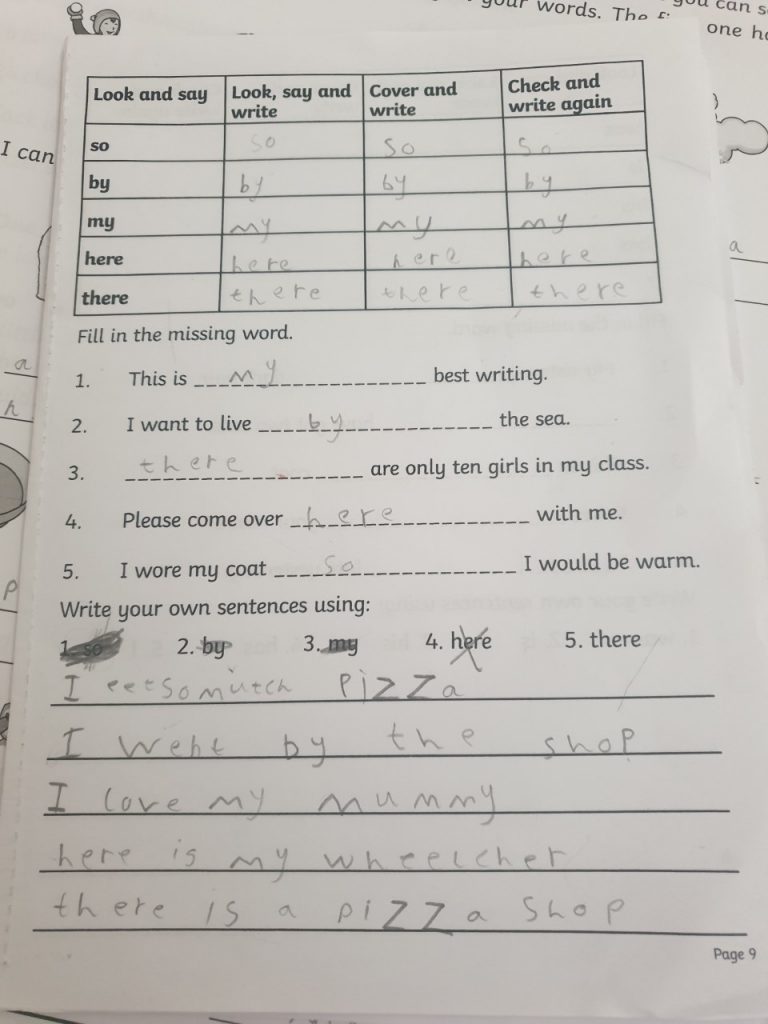 your words. The
you can s
one ha
I can
Look and say Look, say and write Cover and write Check and write again
so so so so
by by by by
my my my my
here here here here
there there there there
a
a
h
Fill in the missing word.
1. This is my best writing.
2. I want to live by the sea.
3. there are only ten girls in my class.
4. Please come over here with me.
5. I wore my coat so I would be warm.
p
Write your own sentences using:
1. so 2. by 3. my 4. here 5. there
I eetsomutch pizza
I went by the shop
I love my mummy
here is my wheelcher
there is a pizza shop
Page 9